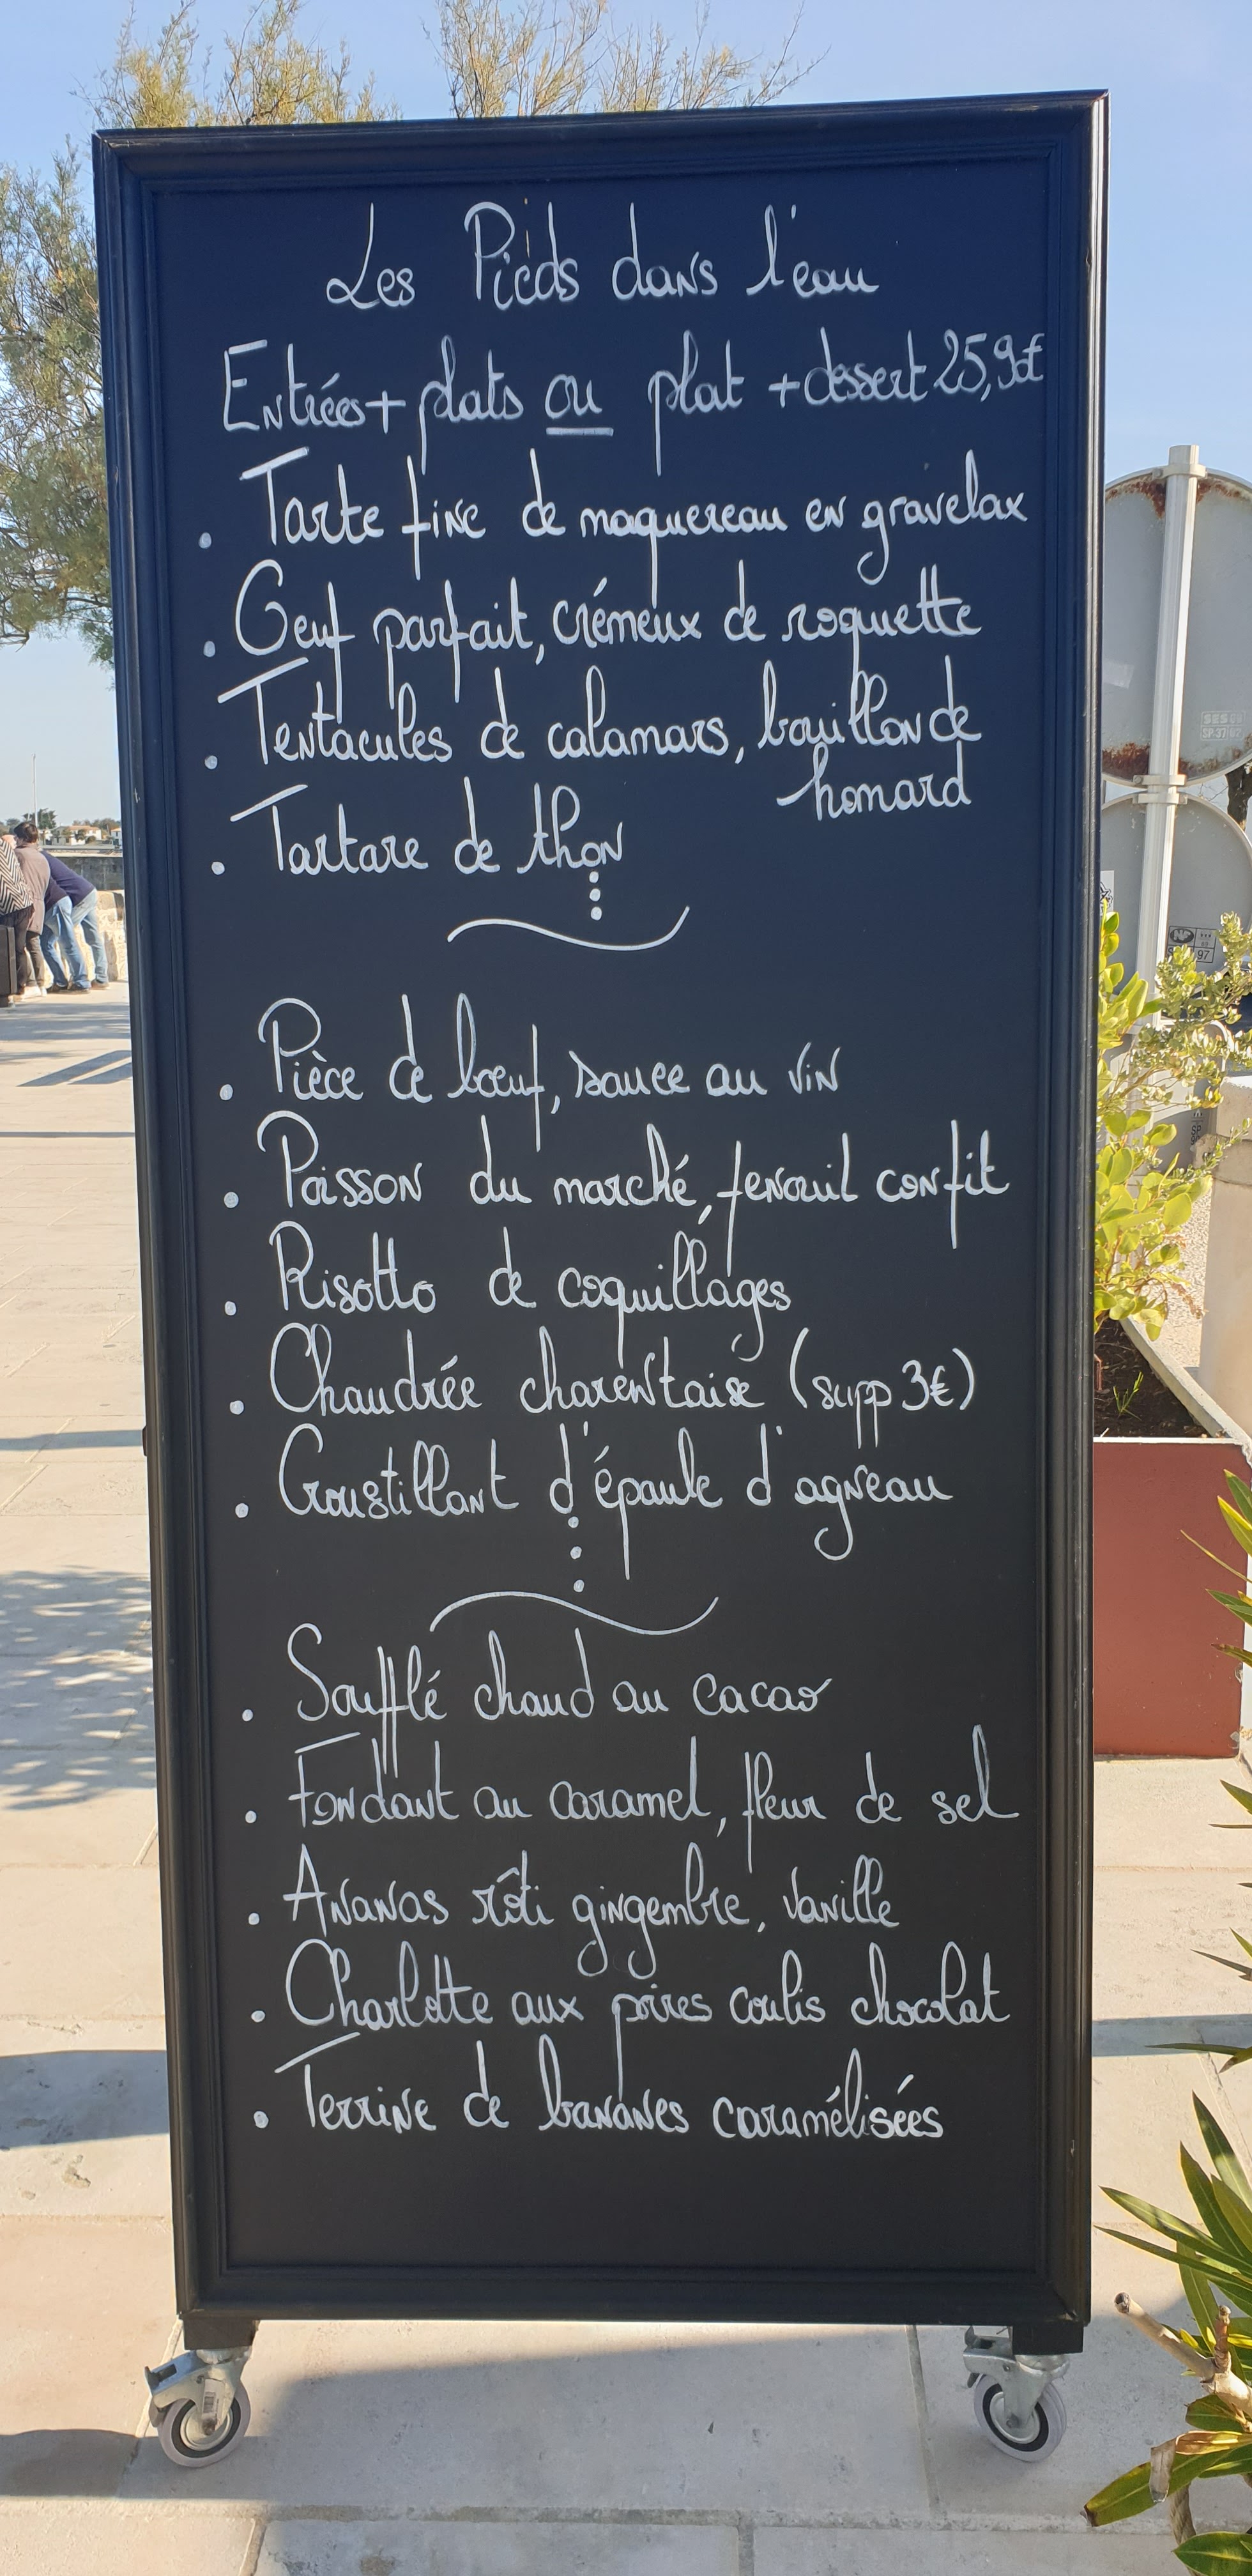 Les Pieds dans l'eau
Entrées + plats ou plat + dessert 25,9€
. Tarte fine de maquereau en gravelax
. Oeuf parfait, crémeux de roquette
. Tentacules de calamars, bouillon de
homard
. Tartare de thon
. Pièce de bœuf, sauce au vin
. Poisson du marché, fenouil confit
. Risotto de coquillages
. Chaudrée charentaise (supp 3€)
. Croustillant d'épaule d'agneau
. Soufflé chaud au cacao
. Fondant au caramel, fleur de sel
. Ananas rôti gingembre, vanille
. Charlotte aux poires coulis chocolat
. Terrine de bananes caramélisées
NF
97